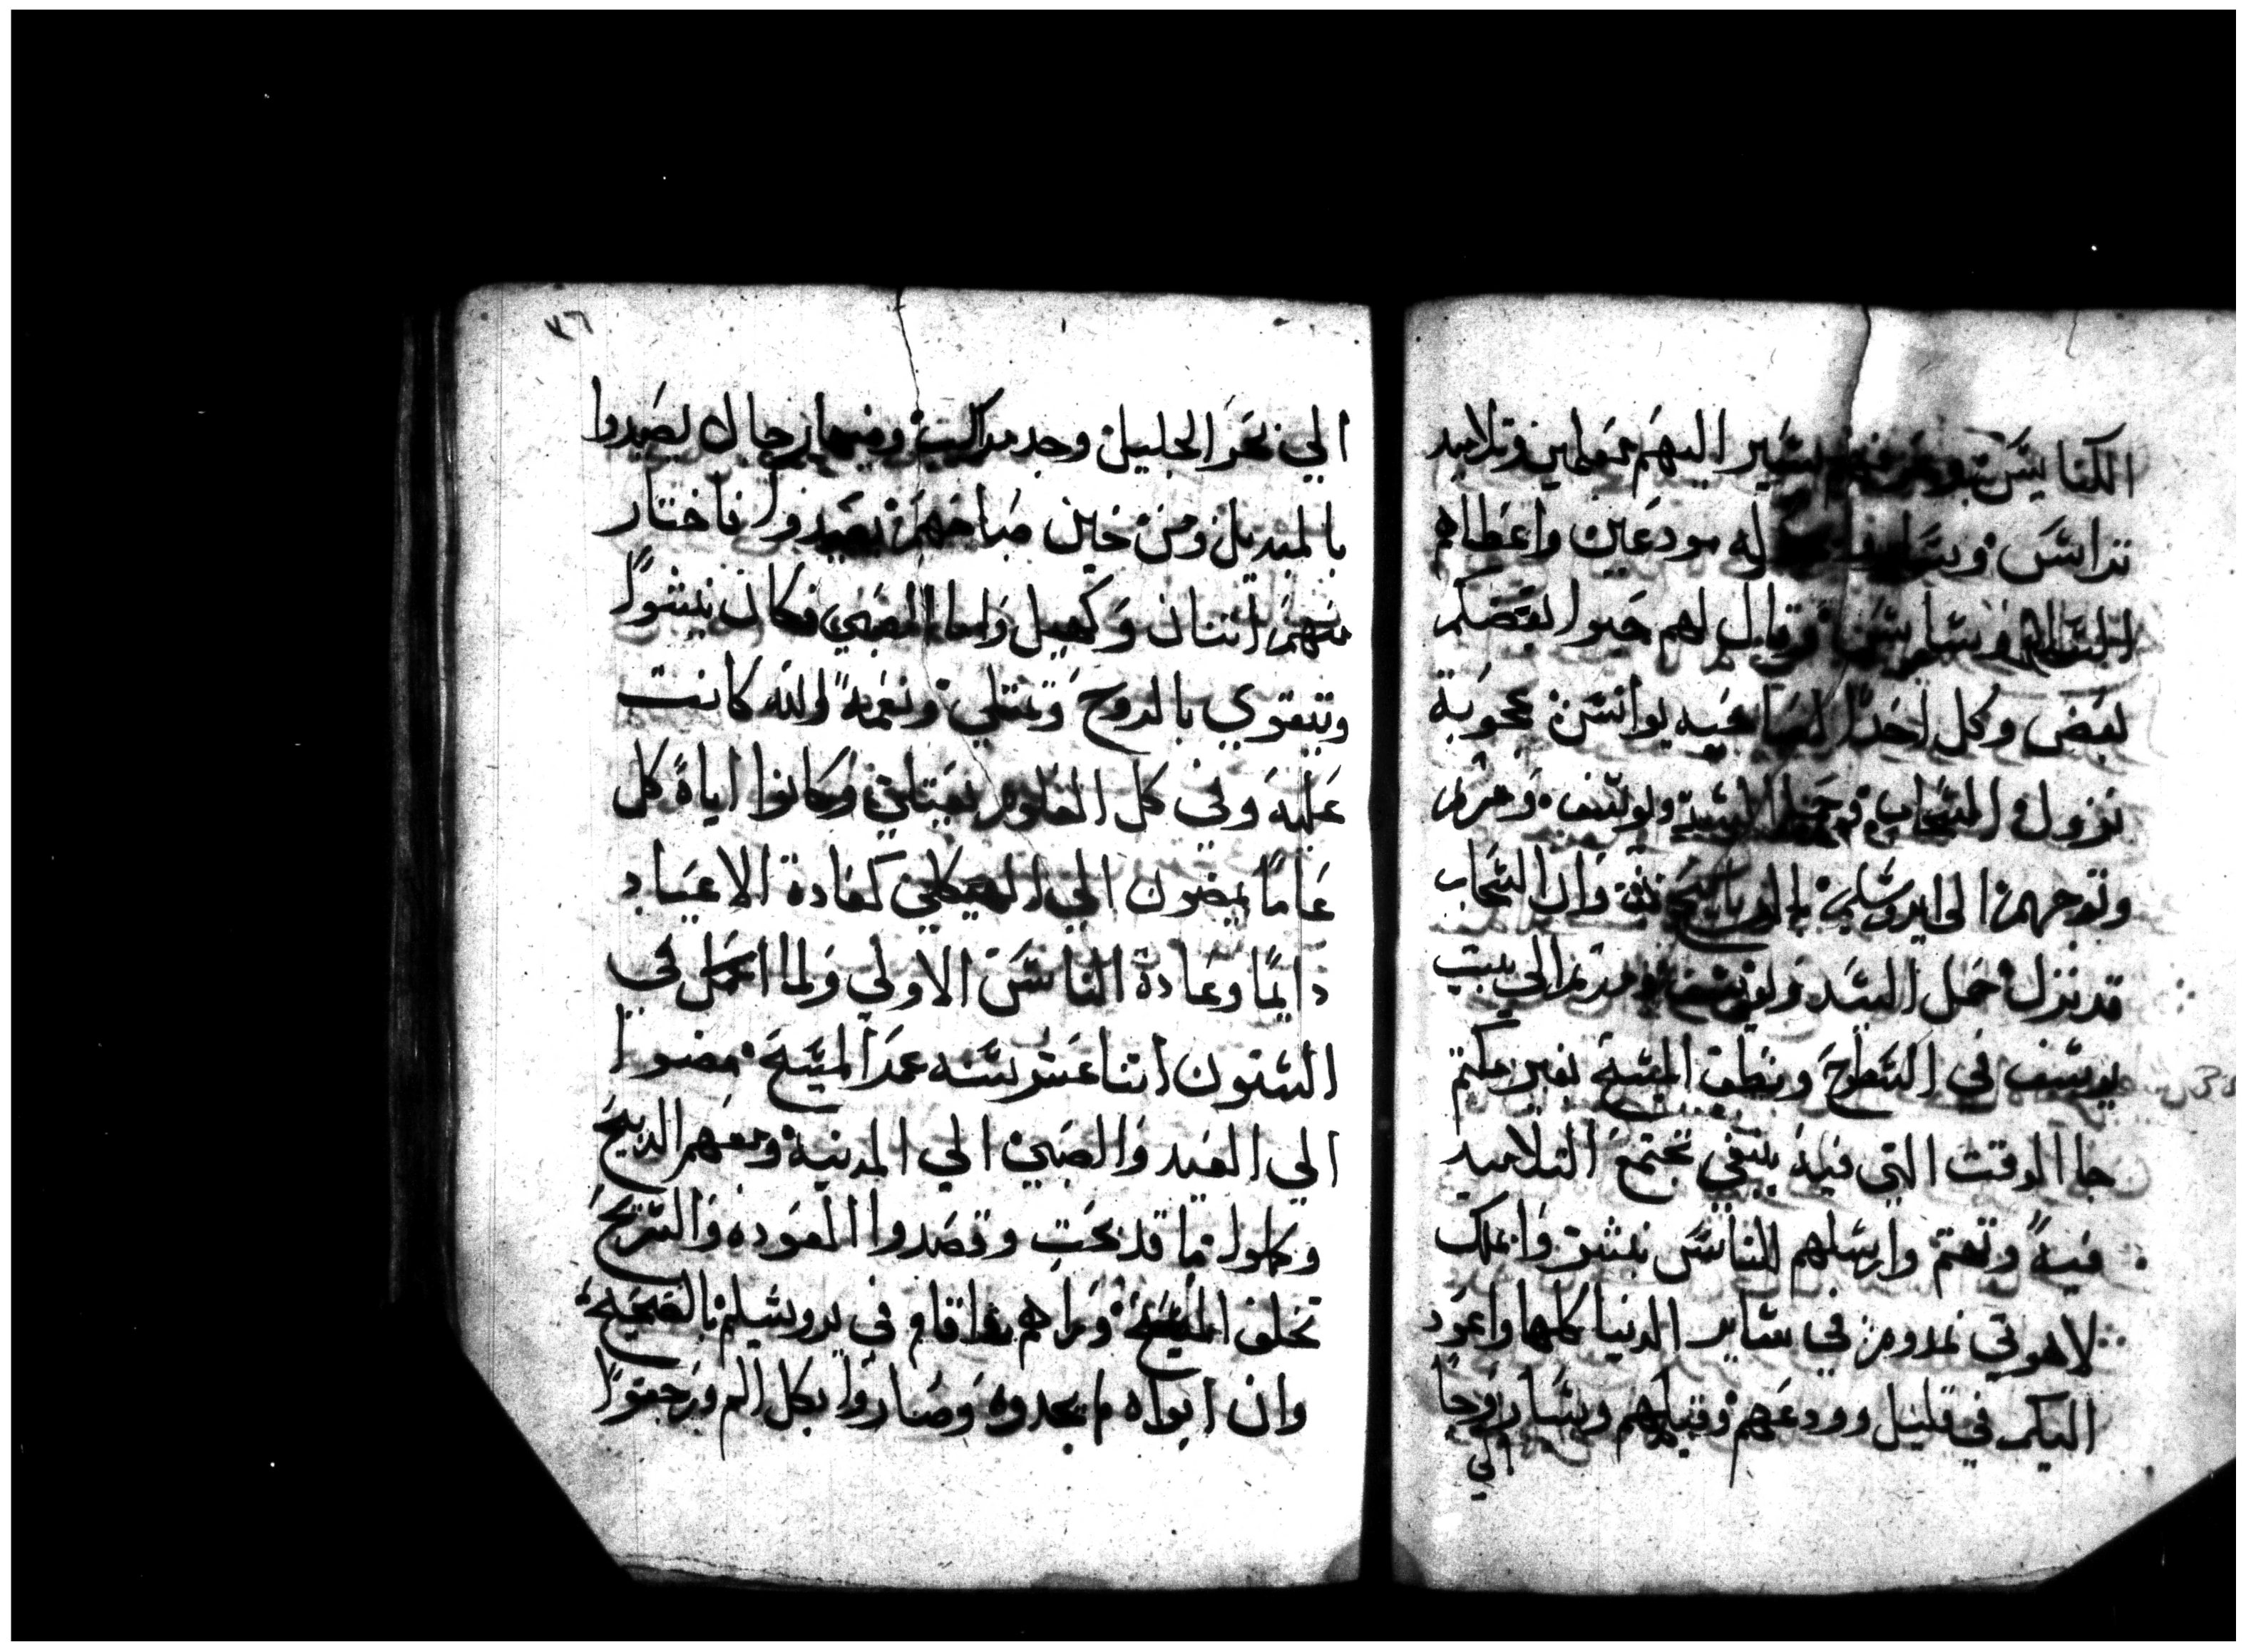 الكنايس
وتلاميد
تراس وبتار له مودعين واعطاهم
السلام وقال لهم حبوا بعضكم
لبعض وكل احدًا لصاحبه يوانس عجوبة
نزول السحاب وحمل السيد ويوسف ومريم
وتوجهم الي ايروشليم وان السحاب
قد نزل حمل السيد ويوسف ومريم الي بيت
يوسف في السطوح ونطق المسيح بغير مكتم
جا الوقت التي فيه ينبغي تجتمع التلاميد
فيه وتهتم وارسلهم للناس تبشر واملك
لاهوتي تمدوم في ساير الدنيا كلها واعود
اليكم في قليل وودعهم وقبلهم وسار روحا
الي
٧٦
الي بحر الجليل وجد مراكب وفيها رجال لصيدوا
بالمنديل ومن حين صباحهم يصيدوا فاختار
منهم اتنان وكهيل واما الصبي فكان ينشوا
ويتقوي بالروح ويمتلي ونعمة الله كانت
عليه وفي كل العلوم وكانوا اباه كل
عاما يمضون الي الهيكل كعادة الاعياد
دايما وعادة الناس الاولي ولما اكمل في
السنون اتنا عشر سنه عمر المسيح مضوا
الي العيد والصبي الي المدينة ومعهم الدبيح
وكملوا ما قد بحب وقصدوا العوده والتسريح
تخلف المسيح وراهم اقام في يروشليم بالصحيح
وان ابواه لم يجدوه وصاروا بكل الم ورجعوا